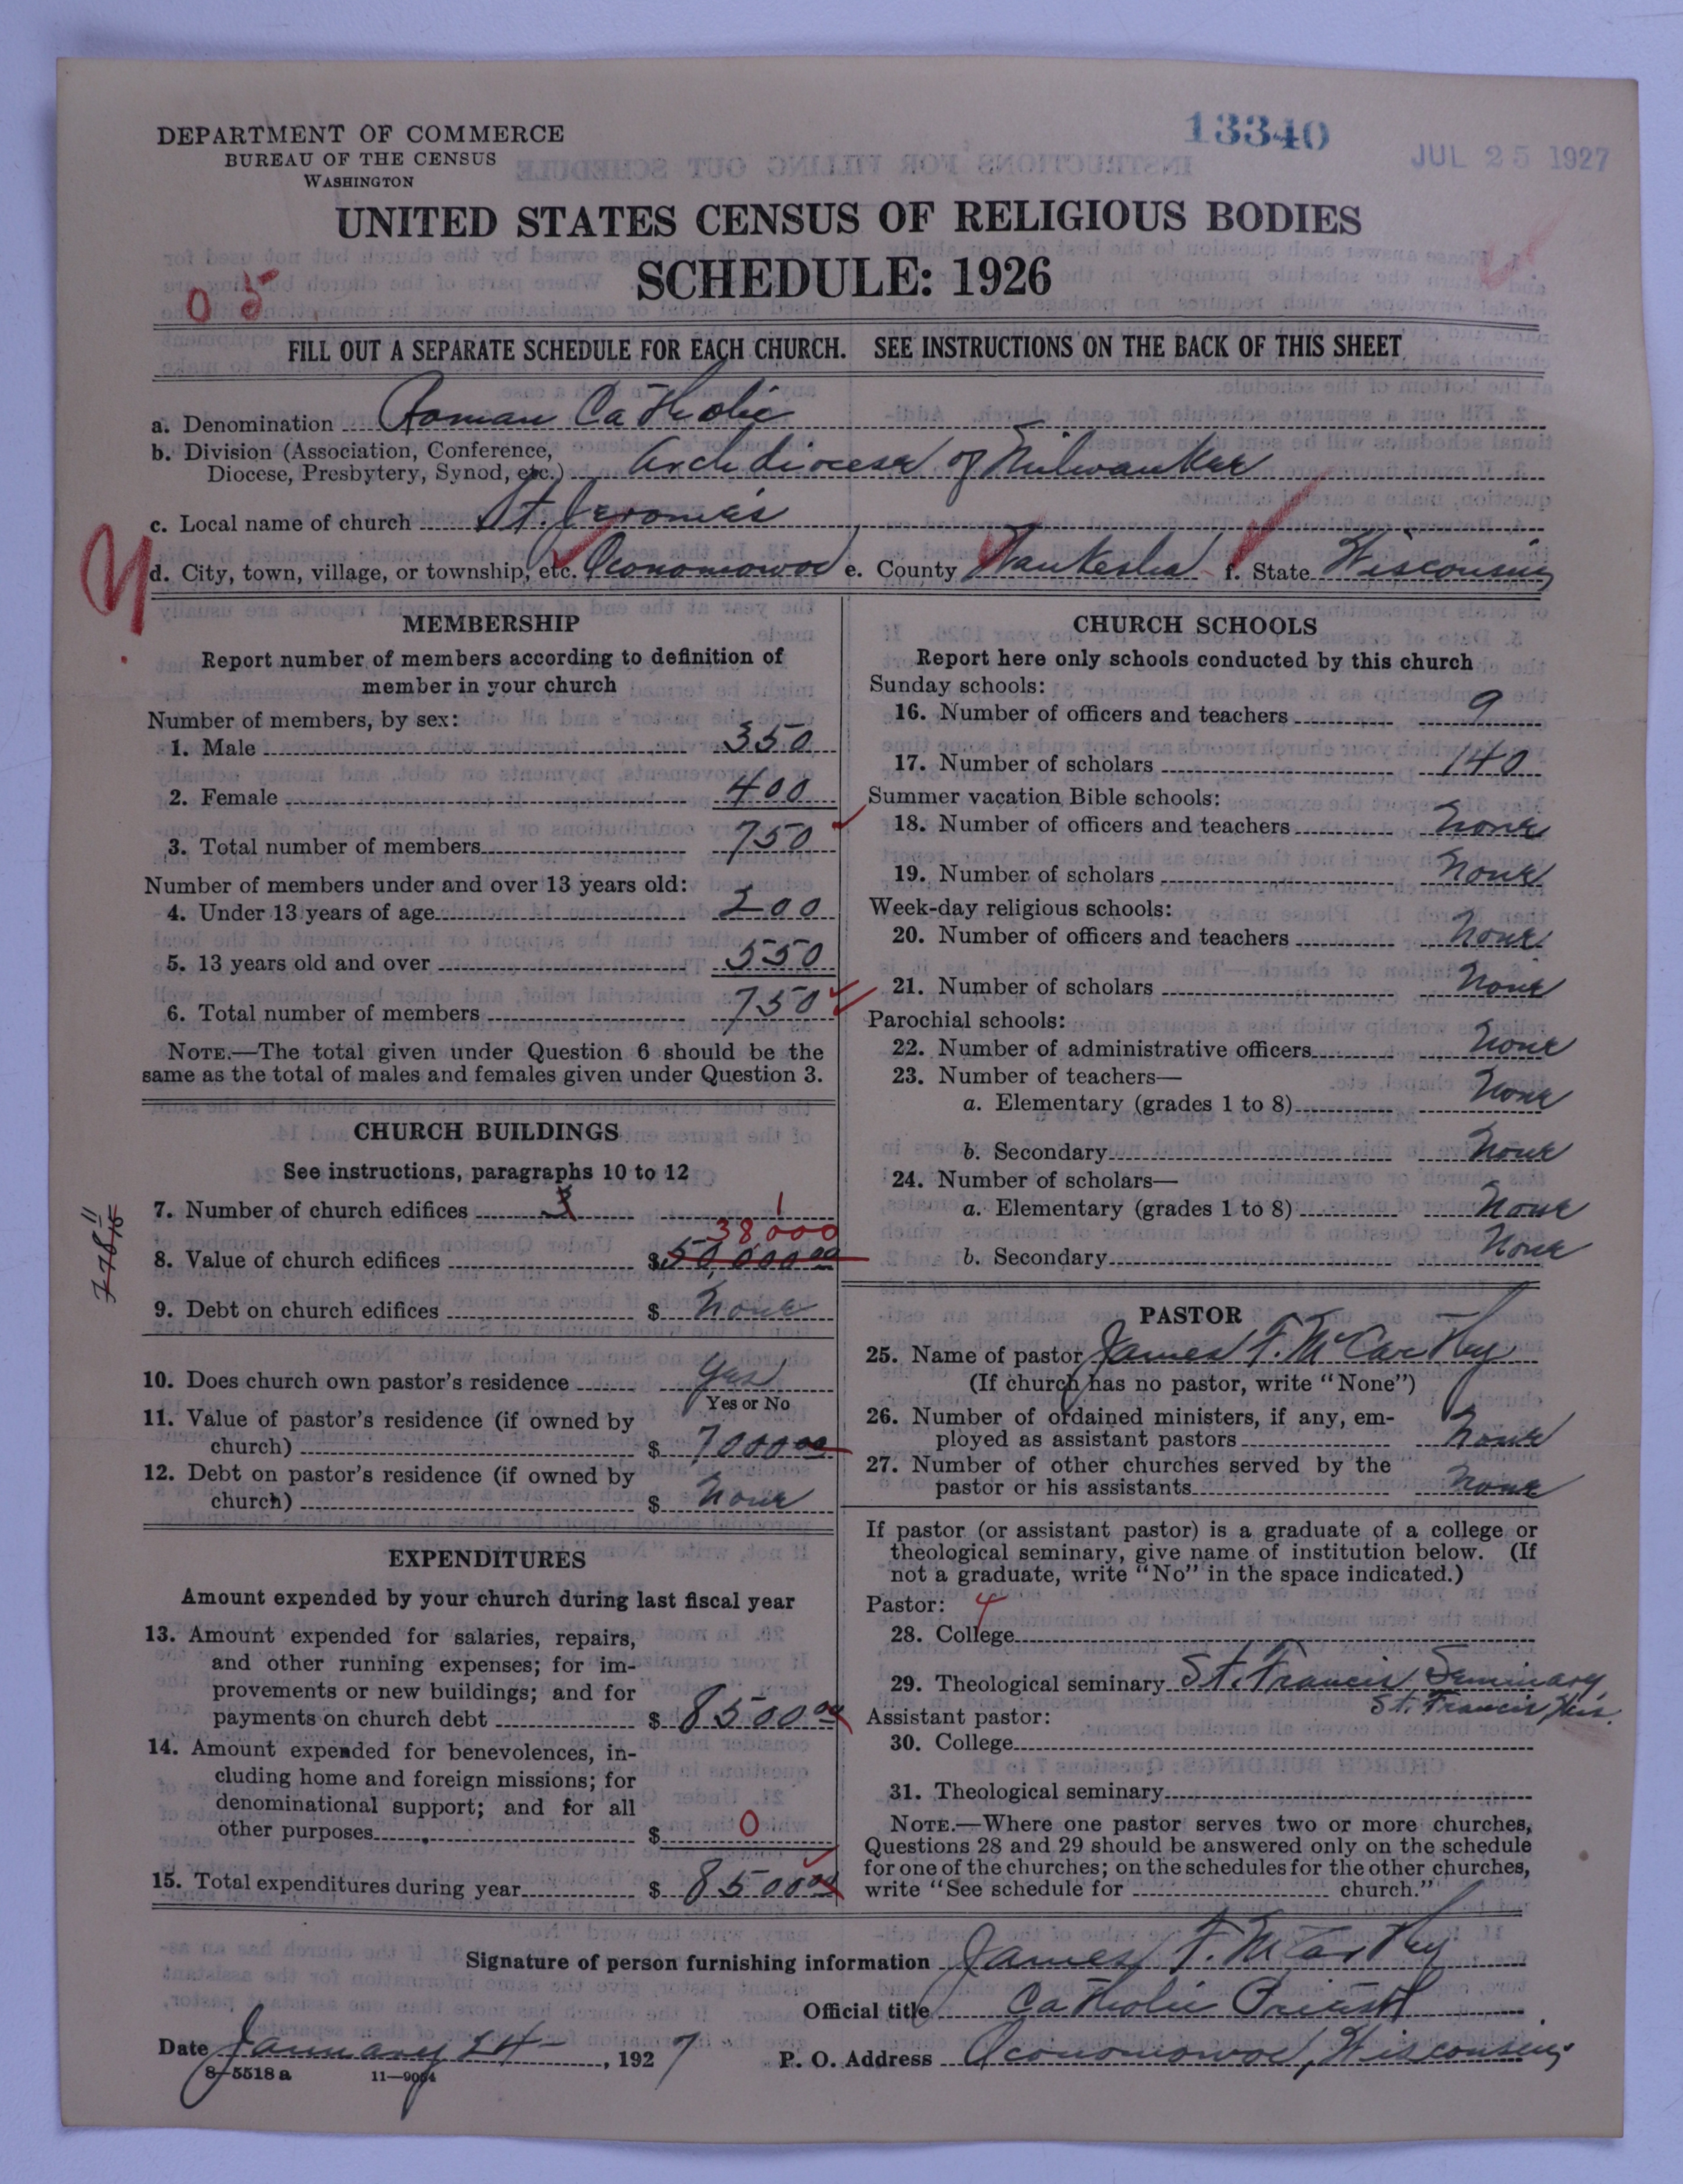 DEPARTMENT OF COMMERCE
BUREAU OF THE CENSUS
WASHINGTON
13340
JUL 25 1927
UNITED STATES CENSUS OF RELIGIOUS BODIES
SCHEDULE: 1926
0 5
FILL OUT A SEPARATE SCHEDULE FOR EACH CHURCH. SEE INSTRUCTIONS ON THE BACK OF THIS SHEET
a. Denomination Roman Catholic
b. Division (Association, Conference,
Diocese, Presbytery, Synod, etc.) Archdiocese of Milwaukee
c. Local name of church St. Jerome's
d. City, town, village, or township, etc. Oconomowoc e. County Waukesha f. State Wisconsin
MEMBERSHIP
Report number of members according to definition of
member in your church
Number of members, by sex:
1. Male 350
2. Female 400
3. Total number of members 750
Number of members under and over 13 years old:
4. Under 13 years of age 200
5. 13 years old and over 550
6. Total number of members 750
NOTE.—The total given under Question 6 should be the
same as the total of males and females given under Question 3.
CHURCH BUILDINGS
See instructions, paragraphs 10 to 12
7. Number of church edifices 3 1
38,000
8. Value of church edifices $50,000 00
9. Debt on church edifices $ None
10. Does church own pastor's residence Yes
Yes or No
11. Value of pastor's residence (if owned by
church) $ 7000 00
12. Debt on pastor's residence (if owned by
church) $ None
EXPENDITURES
Amount expended by your church during last fiscal year
13. Amount expended for salaries, repairs,
and other running expenses; for im-
provements or new buildings; and for
payments on church debt $ 8500 00
14. Amount expended for benevolences, in-
cluding home and foreign missions; for
denominational support; and for all
other purposes $ 0
15. Total expenditures during year $ 8500 00
CHURCH SCHOOLS
Report here only schools conducted by this church
Sunday schools:
16. Number of officers and teachers 9
17. Number of scholars 140
Summer vacation Bible schools:
18. Number of officers and teachers None
19. Number of scholars None
Week-day religious schools:
20. Number of officers and teachers None
21. Number of scholars None
Parochial schools:
22. Number of administrative officers None
23. Number of teachers—
a. Elementary (grades 1 to 8) None
b. Secondary None
24. Number of scholars—
a. Elementary (grades 1 to 8) None
b. Secondary None
PASTOR
25. Name of pastor James F. McCarthy
(If church has no pastor, write "None")
26. Number of ordained ministers, if any, em-
ployed as assistant pastors None
27. Number of other churches served by the
pastor or his assistants None
If pastor (or assistant pastor) is a graduate of a college or
theological seminary, give name of institution below. (If
not a graduate, write "No" in the space indicated.)
Pastor: 4
28. College
29. Theological seminary St. Francis Seminary
St. Francis, Wis.
Assistant pastor:
30. College
31. Theological seminary
NOTE.—Where one pastor serves two or more churches,
Questions 28 and 29 should be answered only on the schedule
for one of the churches; on the schedules for the other churches,
write "See schedule for church."
Signature of person furnishing information James F. McCarthy
Official title Catholic Priest
Date January 24 , 1927 P. O. Address Oconomowoc, Wisconsin
8-5518 a 11—9054